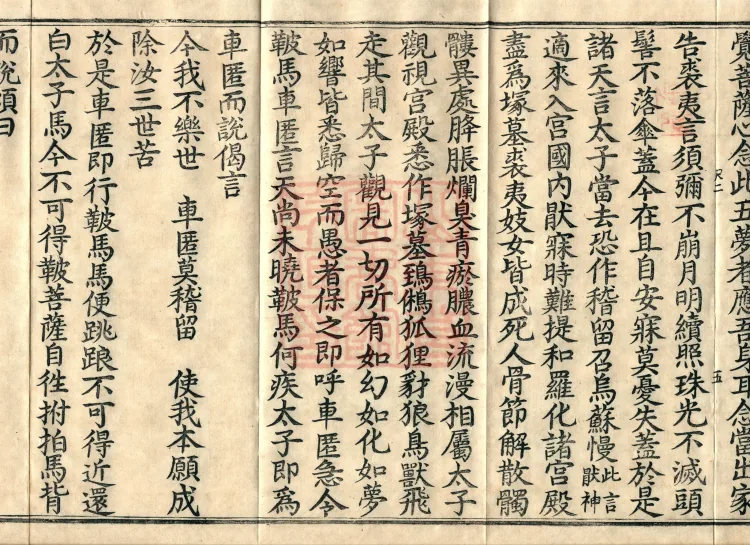 覺菩薩心念此五夢者應吾身耳念當出家
五
告裘夷言須彌不崩月明續照珠光不滅頭
髻不落傘蓋今在且自安寐莫憂失蓋於是
諸天言太子當去恐作稽留召烏蘇慢此言猒神
適來入宮國內猒寐時難提和羅化諸宮殿
盡爲塚墓裘夷妓女皆成死人骨節解散髑
髏異處胮脹爛臭青瘀膿血流漫相屬太子
觀視宮殿悉作塚墓鵄鵂狐狸豺狼鳥獸飛
走其間太子觀見一切所有如幻如化如夢
如響皆悉歸空而愚者保之即呼車匿急令
鞁馬車匿言天尚未曉鞁馬何疾太子即爲
車匿而說偈言
今我不樂世　車匿莫稽留　使我本願成
除汝三世苦
於是車匿即行鞁馬馬便跳踉不可得近還
白太子馬今不可得鞁菩薩自徃拊拍馬背
而說頌曰